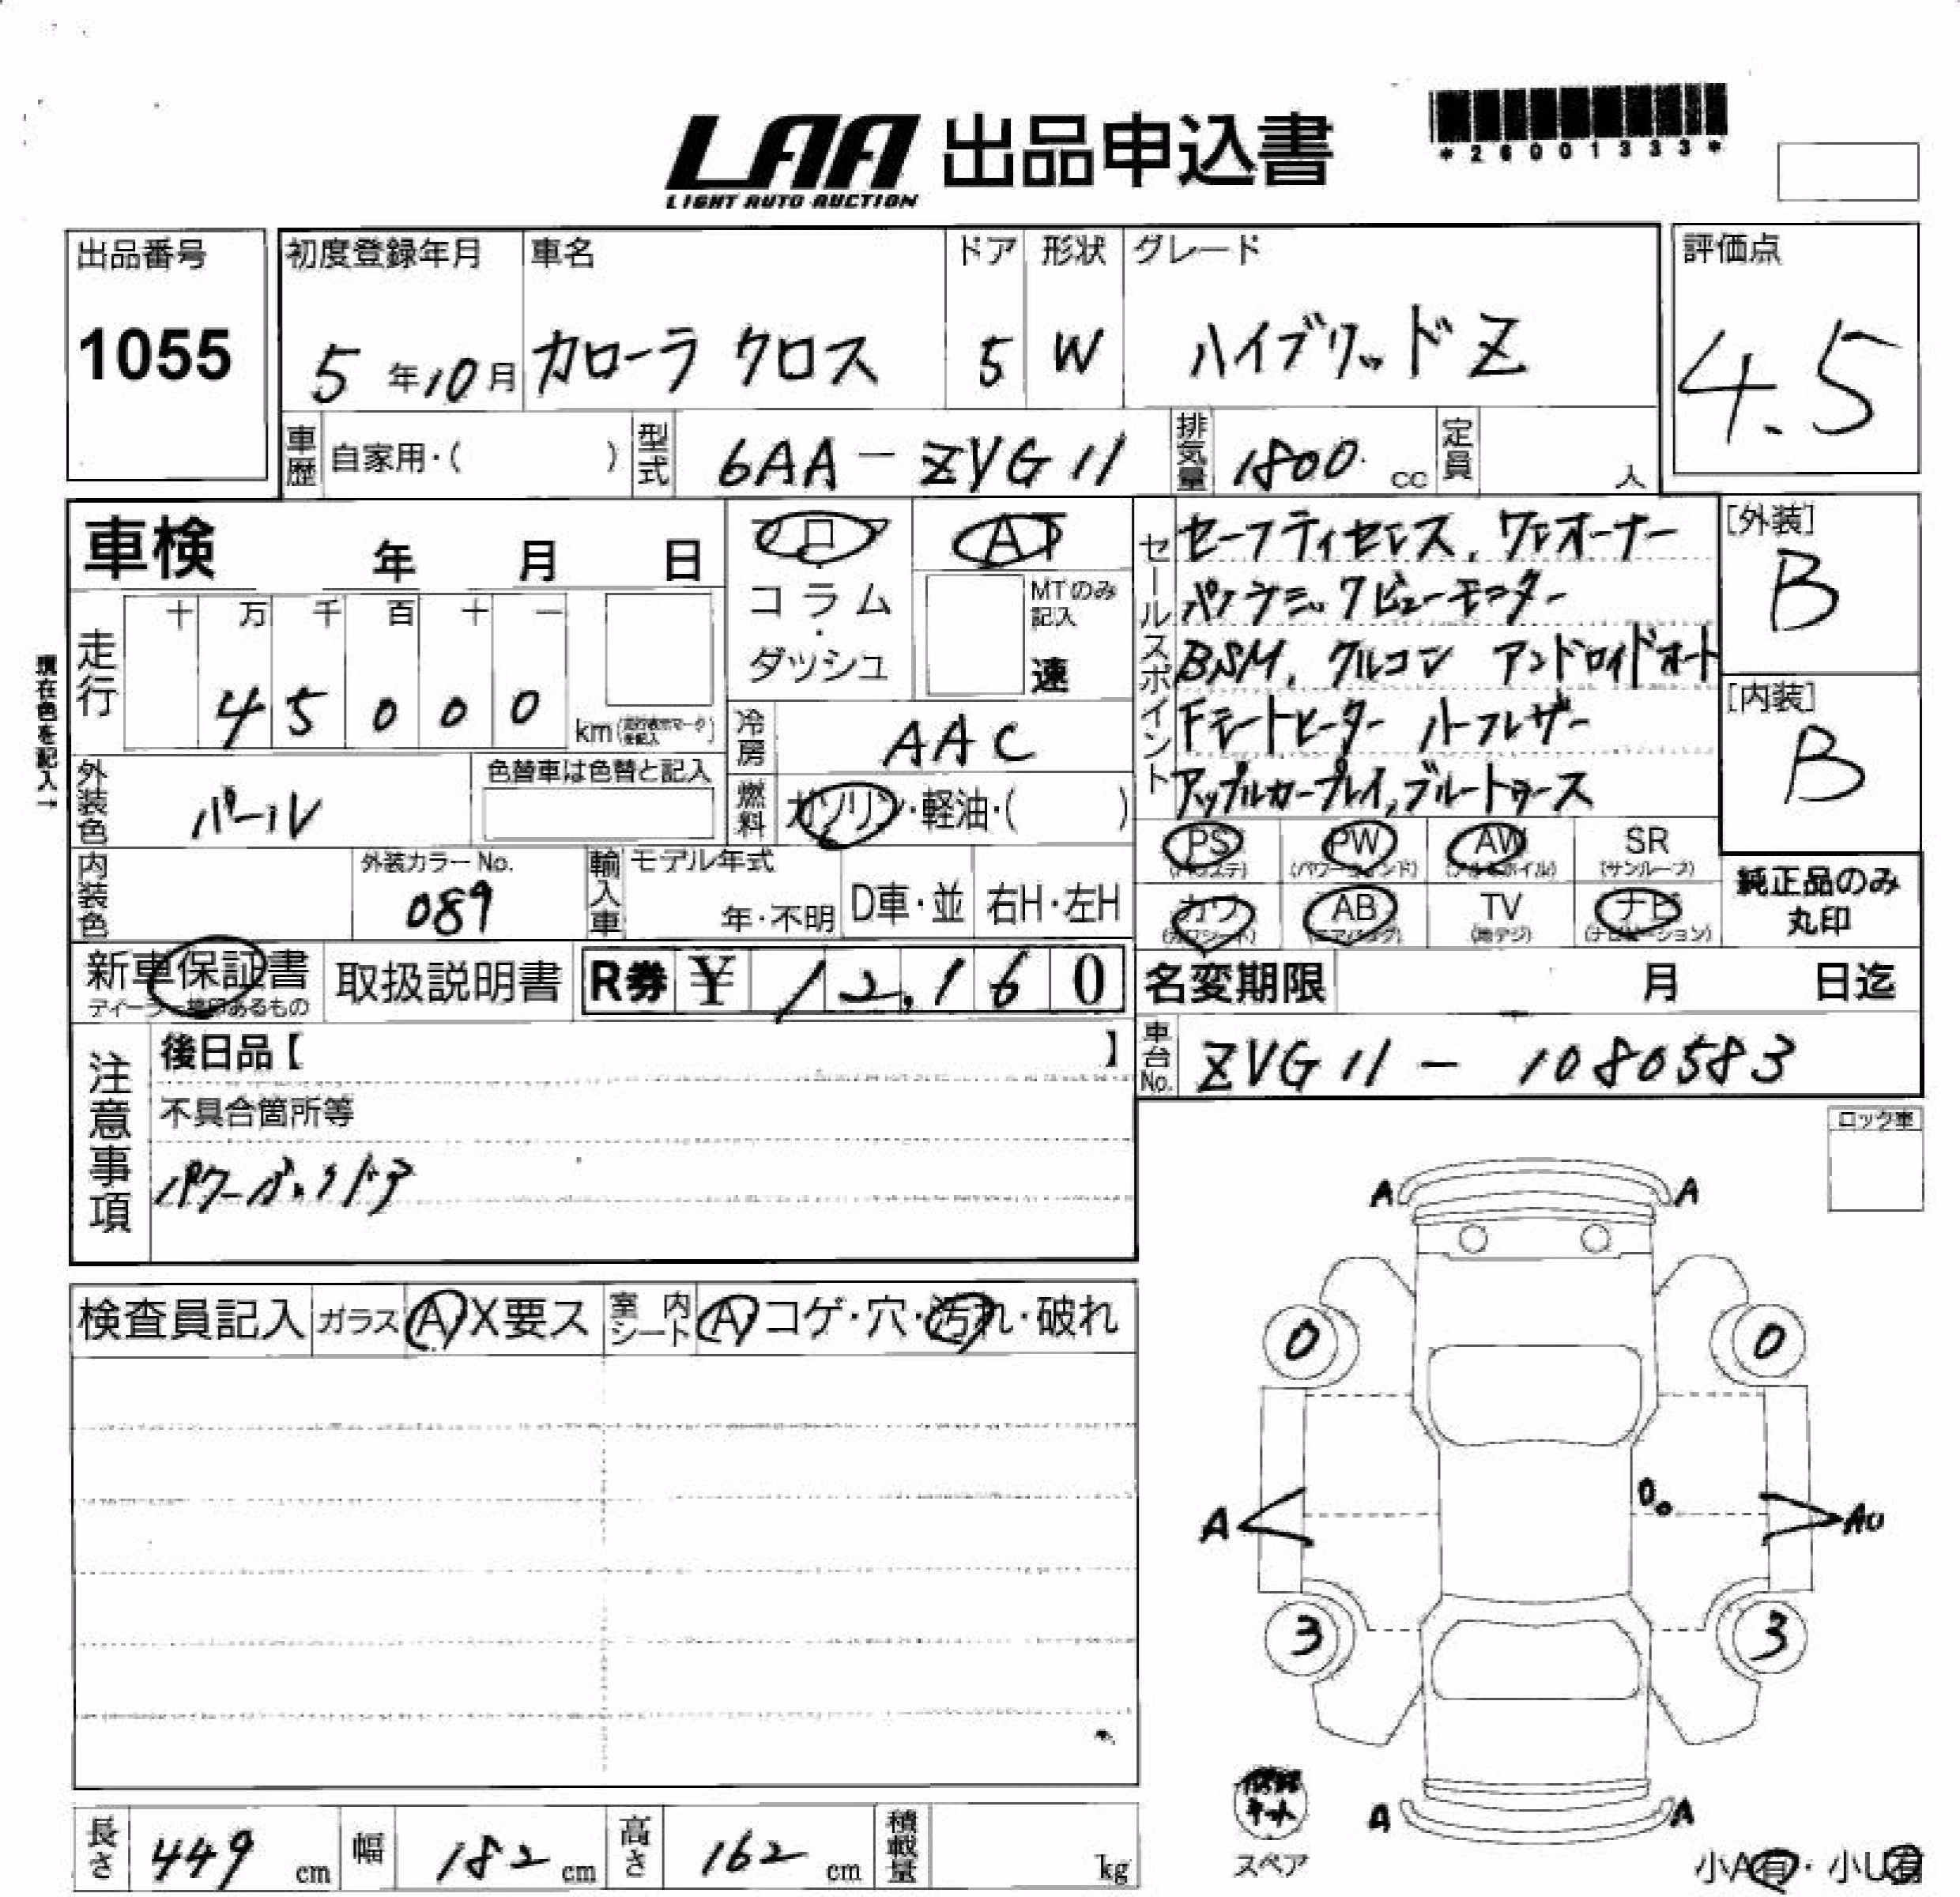 LAA 出品申込書
LIGHT AUTO AUCTION
*26001333*
出品番号 初度登録年月 車名 ドア 形状 グレード 評価点
1055 5年10月 カローラ クロス 5 W ハイブリッド Z 4.5
車歴 自家用・( ) 型式 6AA-ZVG11 排気量 1800 cc 定員 人
車検 年 月 日
フロア AT
コラム・ダッシュ
MTのみ記入 速
走行 十 万 千 百 十 一
45000 km
現在色を記入→
冷房 AAC
外装色 パール 色替車は色替と記入
燃料 ガソリン・軽油・( )
内装色 外装カラーNo. 089
輸入車 モデル年式 年・不明 D車・並 右H・左H
セールスポイント
セーフティセンス、ワンオーナー
パノラミックビューモニター
BSM、クルコン アンドロイドオート
Fシートヒーター ハーフレザー
アップルカープレイ,ブルートゥース
[外装] B
[内装] B
PS PW AW SR
(パワステ) (パワーウィンド) (アルミホイル) (サンルーフ)
カワ AB TV ナビ
(カワシート) (エアバッグ) (地デジ) (ナビゲーション)
純正品のみ丸印
新車保証書 取扱説明書 R券 ¥ 12,160
ディーラー捺印あるもの
名変期限 月 日迄
車台No. ZVG11-1080583
注意事項
後日品【 】
不具合箇所等
パワーバックドア
ロック車
検査員記入 ガラス A X要ス 室内シート A コゲ・穴・汚れ・破れ
A A
0 0
A AU
3 3
A A
キット
スペア
小A有・小U有
長さ 449 cm 幅 182 cm 高さ 162 cm 積載量 kg